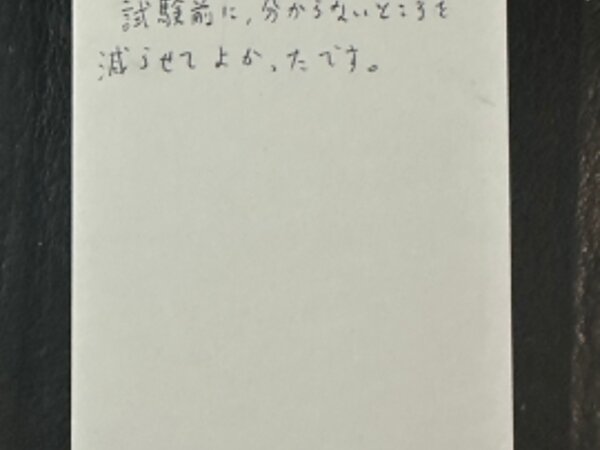 試験前に、分からないところを
減らせてよかったです。